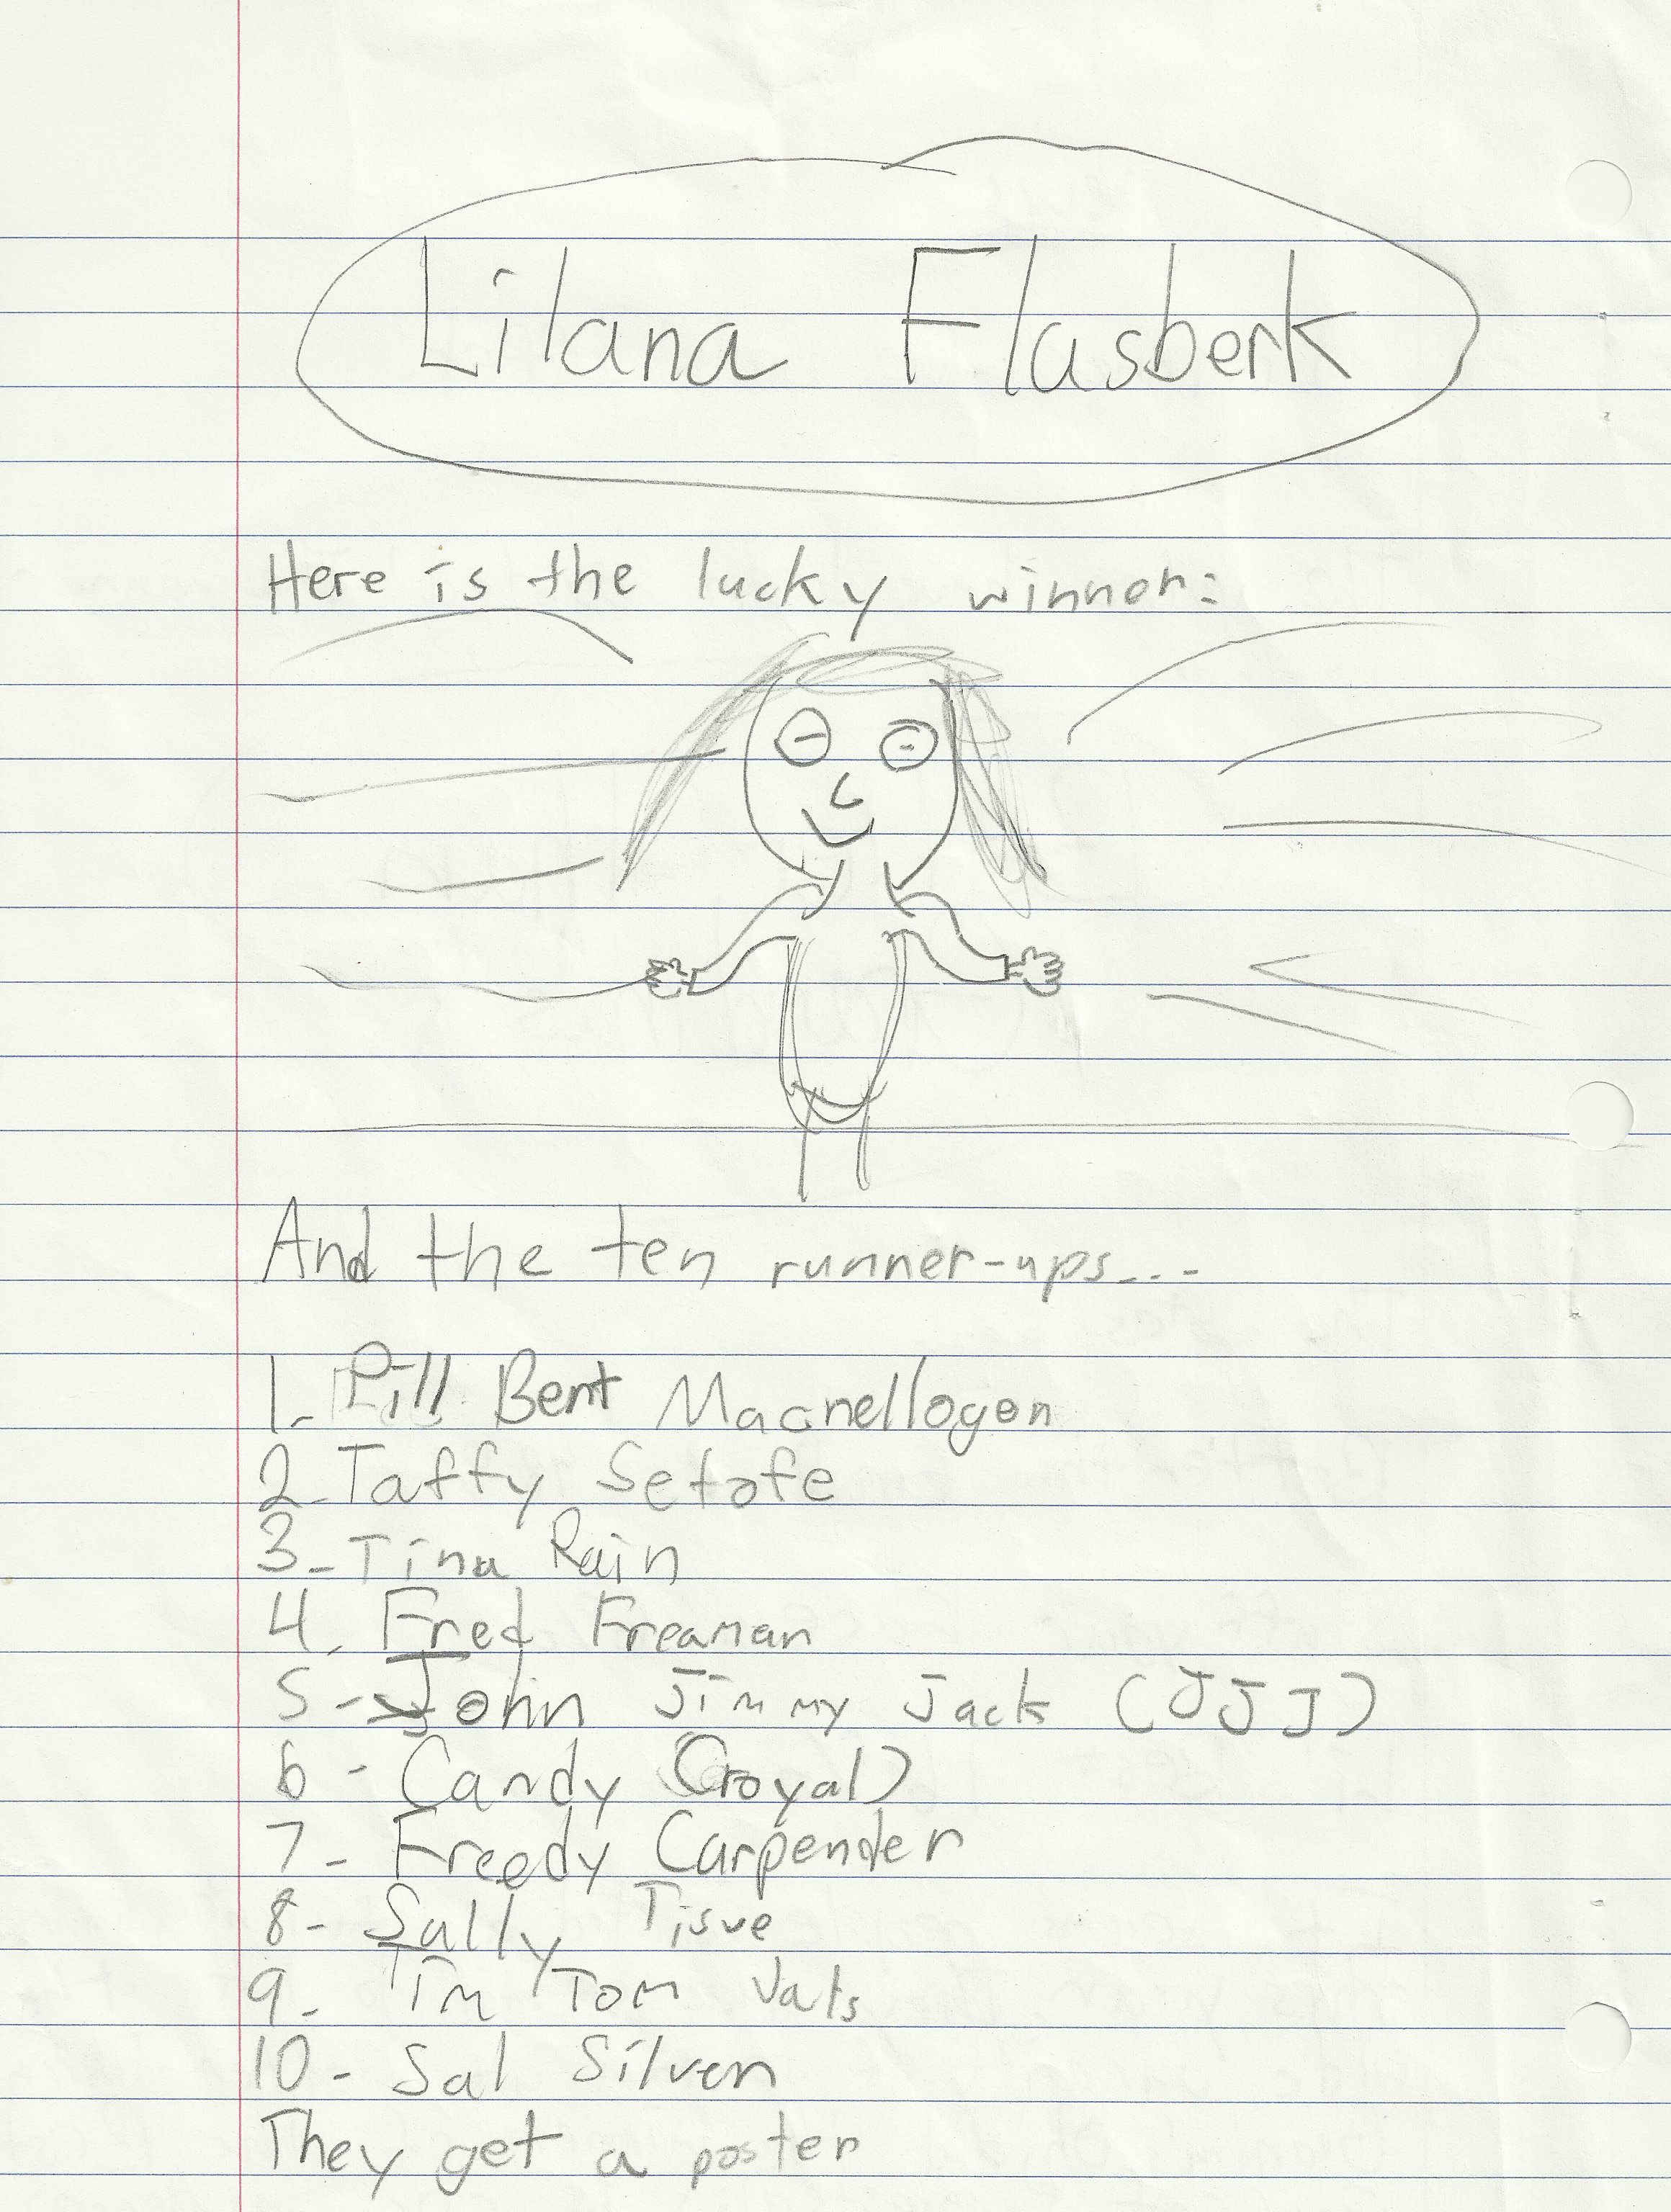 Lilana Flasberk
Here is the lucky winner:
And the ten runner-ups...
1. Pill Bent Macnellogen
2. Taffy Setofe
3. Tina Rain
4. Fred Freaman
5. John Jimmy Jack (JJJ)
6. Candy (royal)
7. Freedy Carpender
8. Sally Tisue
9. Tim Tom Vats
10. Sal Silven
They get a poster